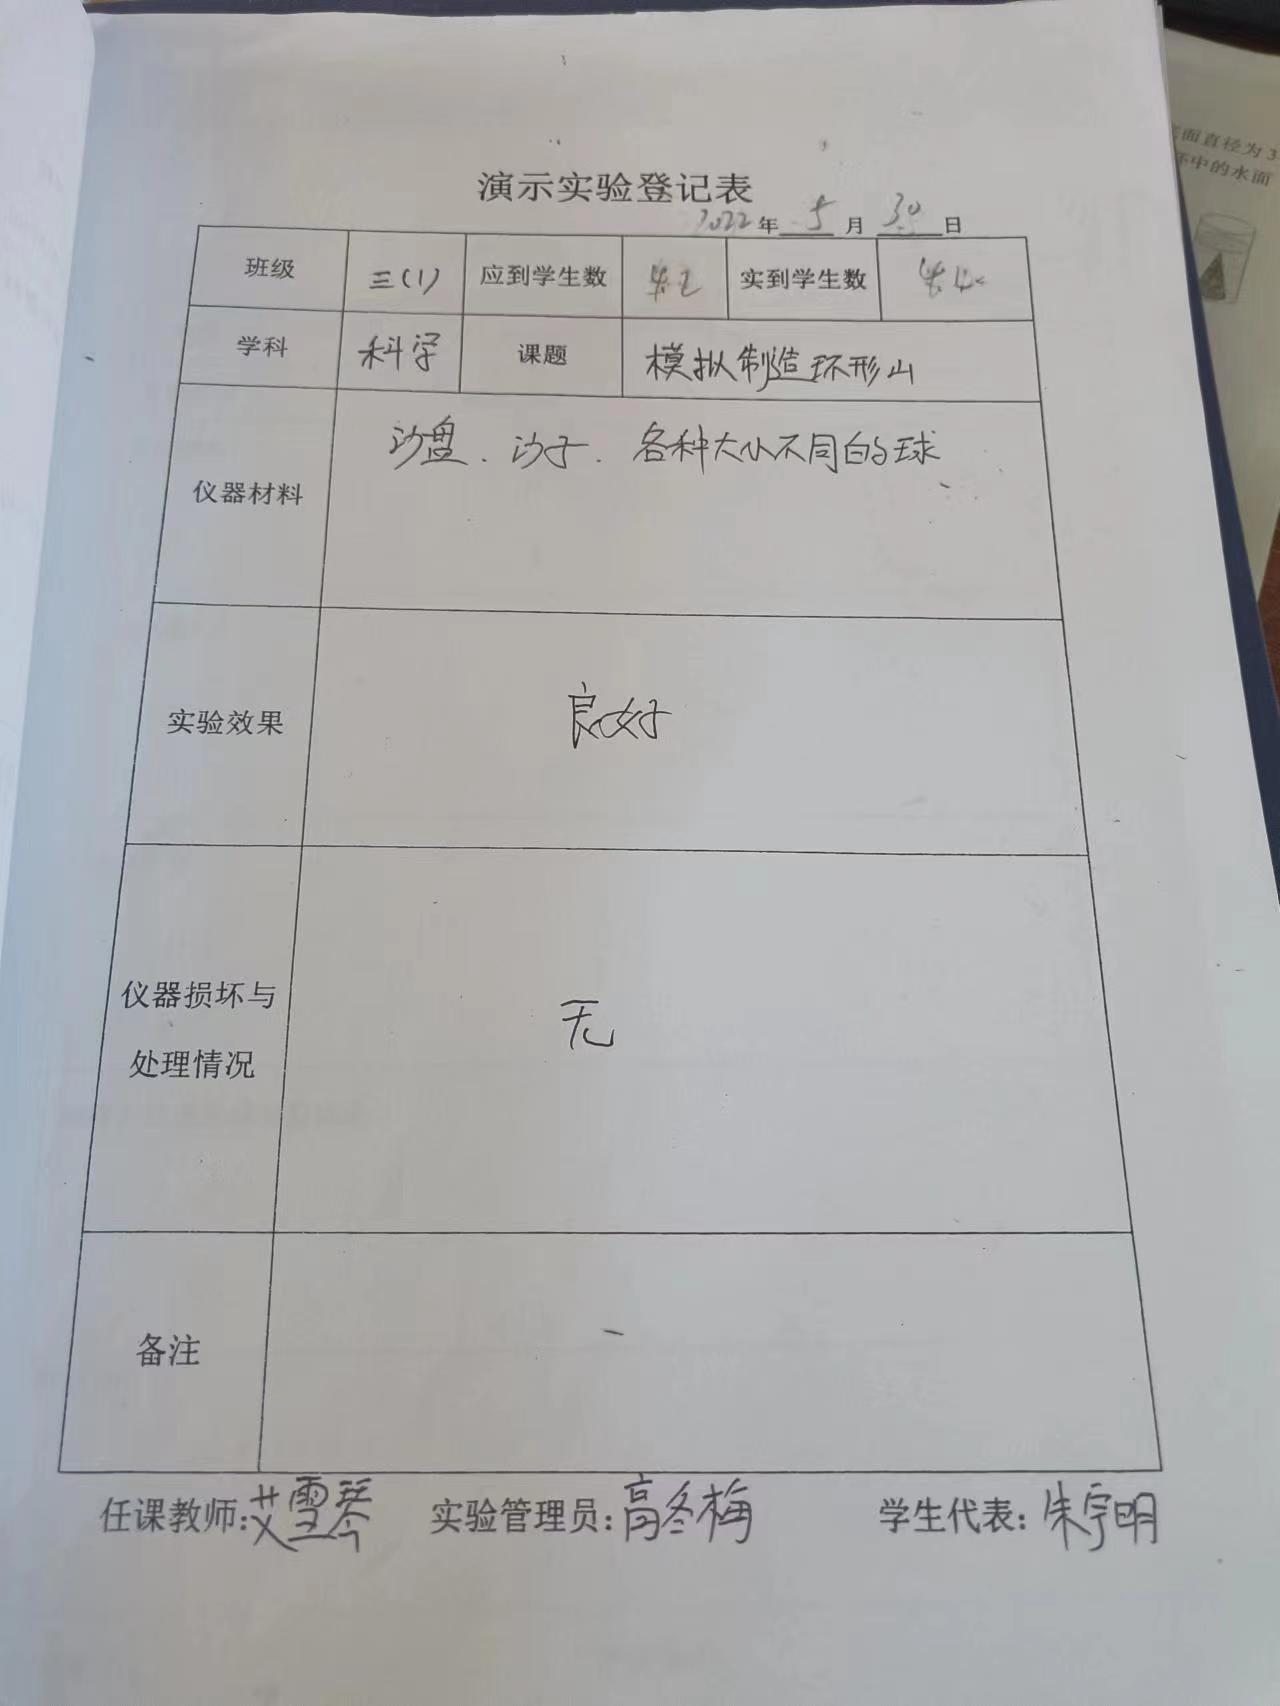 演示实验登记表
2022年 5 月 30 日
班级 三(1) 应到学生数 实到学生数
学科 科学 课题 模拟制造环形山
仪器材料 沙盘、沙子、各种大小不同的球
实验效果 良好
仪器损坏与
处理情况 无
备注
任课教师:艾雪琴 实验管理员:高冬梅 学生代表:朱宇明
面直径为3
杯中的水面